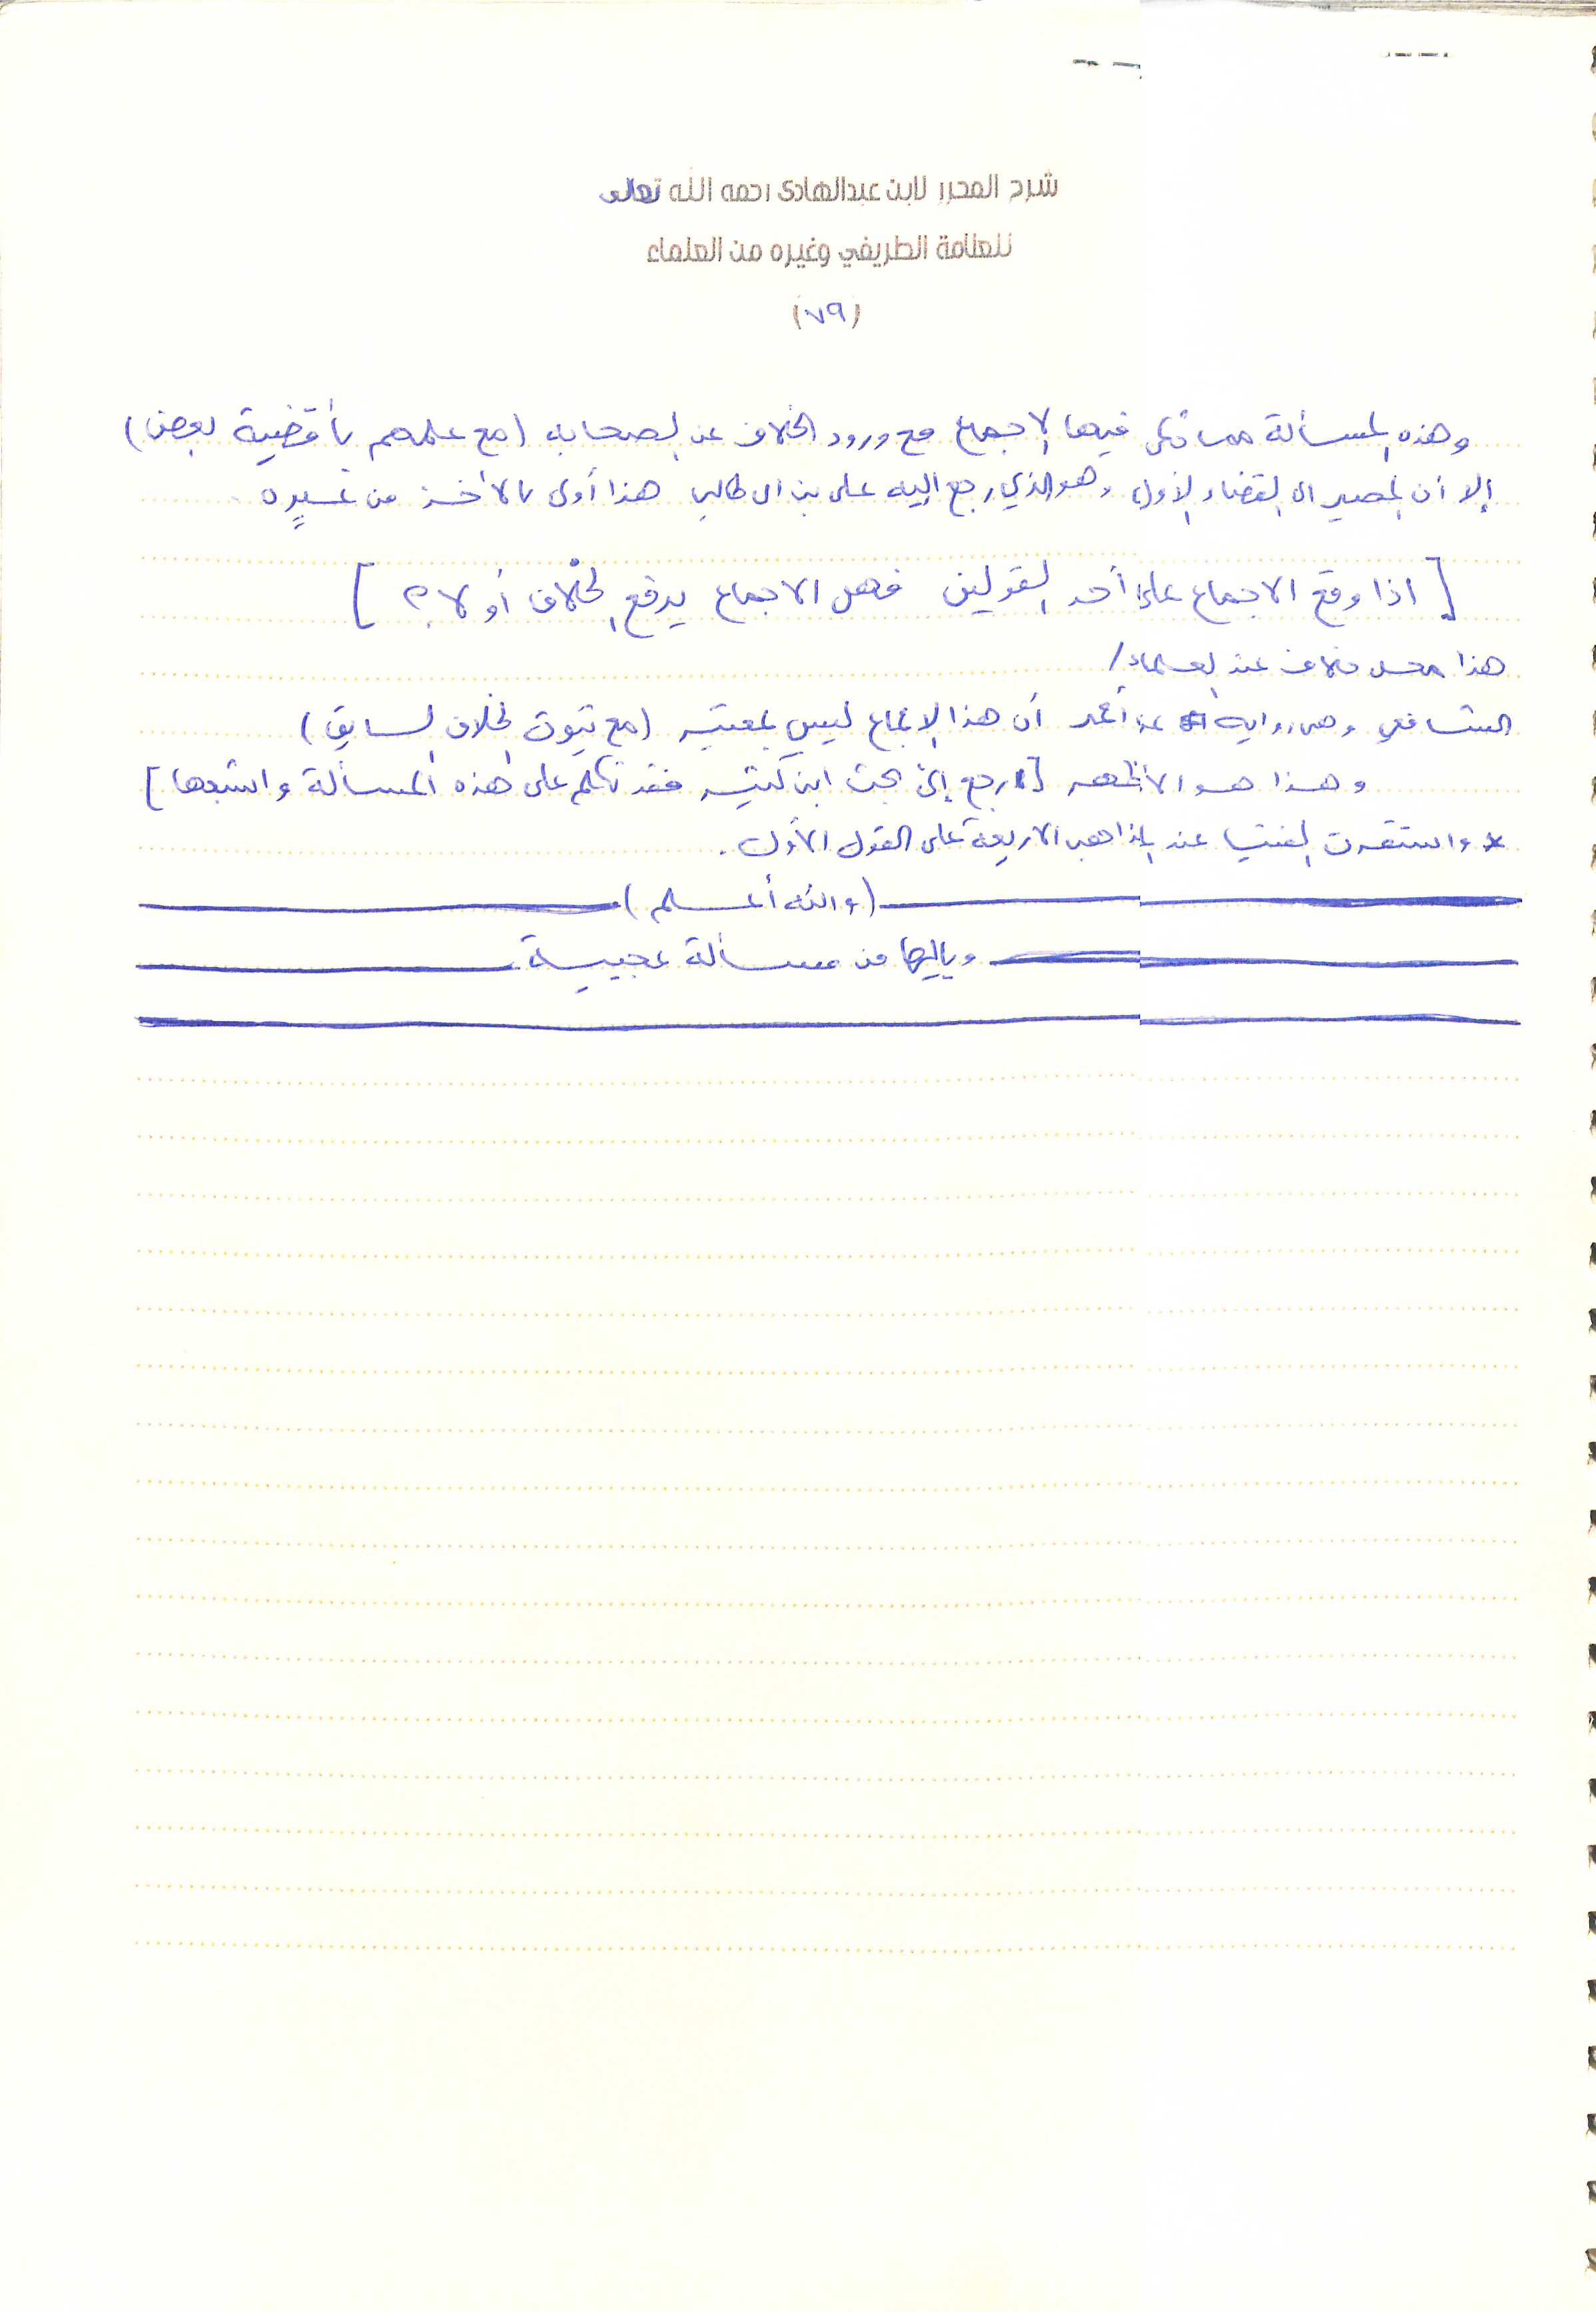 شرح المحرر لابن عبدالهادى رحمه الله تعالى
للعلامة الطريفي وغيره من العلماء
(٧٩)
وهذه المسألة مما حكى فيها الإجماع مع ورود الخلاف عن الصحابه (مع علمهم بأقضية بعض)
إلا أن المصير الى القضاء الأول وهو الذي رجع اليه على بن ابى طالب هذا أولى بالأخذ من غيره
[اذا وقع الاجماع على أحد القولين فهل الاجماع يرفع الخلاف أو لا؟]
هذا محل خلاف عند العلماء/
الشافعي وهى روايه عن أحمد أن هذا الإجماع ليس بمعتبر (مع ثبوت الخلاف السابق)
وهذا هو الأظهر [ارجع إلى بحث ابن كثير فقد تكلم على هذه المسألة واشبعها]
* واستقرت الفتيا عند المذاهب الاربعة على القول الأول.
(والله أعلم)
ويالها من مسألة عجيبة